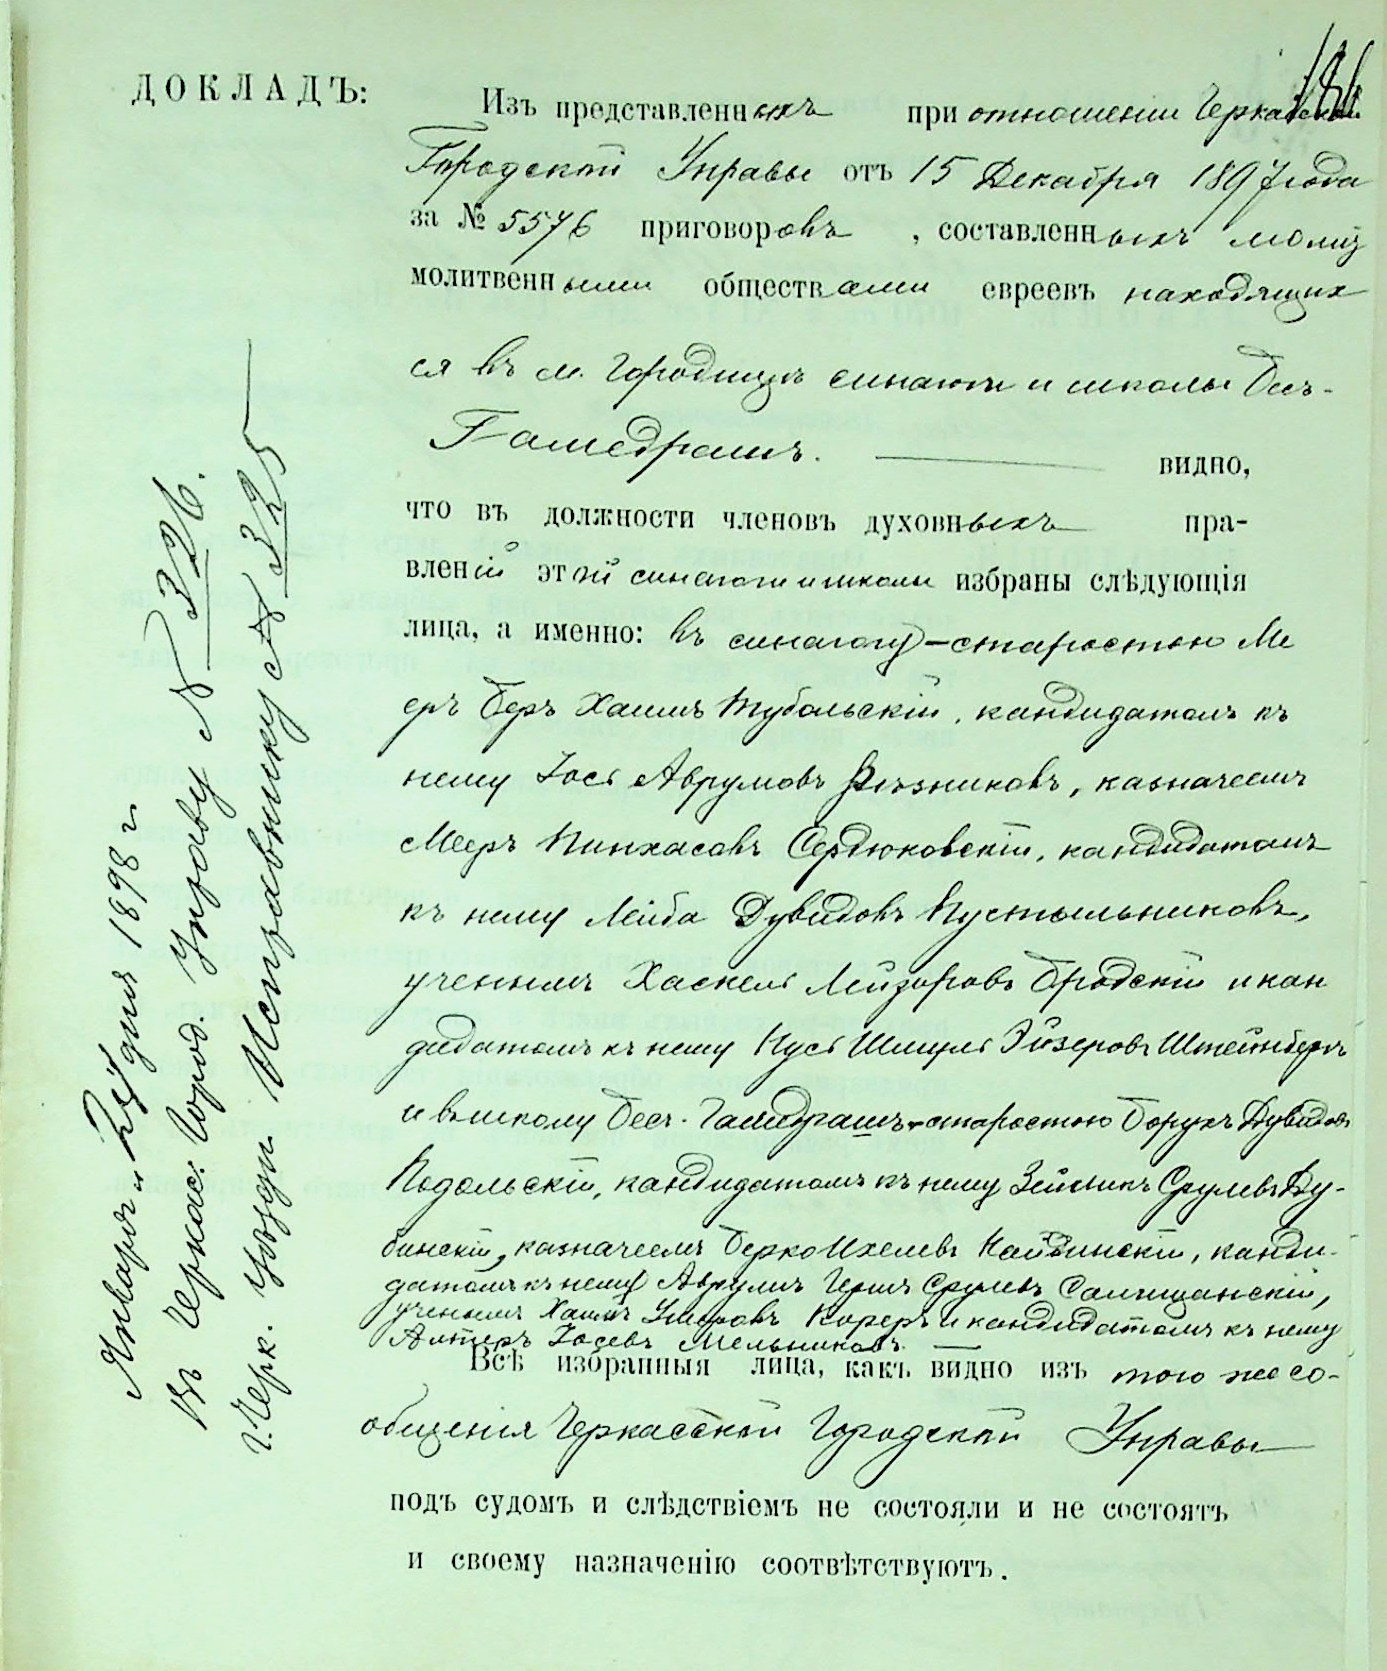 ДОКЛАДЪ:
Изъ представленныхъ при отношеніи Черкасской
Городской Управы отъ 15 Декабря 1897 года
за № 5576 приговоровъ, составленныхъ
молитвенными обществами евреевъ находящих
ся въ м. Городищѣ синагоги и школы Бес-
Гамедрашъ. видно,
что въ должности членовъ духовныхъ пра-
вленій этой синагоги и школы избраны слѣдующія
лица, а именно: въ синагогу - старостою Ме
еръ Беръ Хаимъ Тубольскій, кандидатомъ къ
нему Іось Аврумовъ Рѣзниковъ, казначеемъ
Мееръ Пинхасовъ Сердюковскій, кандидатомъ
къ нему Лейба Дувидовъ Пустыльниковъ,
ученымъ Хаскель Лейзоровъ Бродскій и кан
дидатомъ къ нему Нусь Шмуль Эйзеровъ Штейнбергъ
и въ школу Бес-Гамедрашъ - старостою Борухъ Дувидовъ
Подольскій, кандидатомъ къ нему Срулевъ Ду-
бинскій, казначеемъ Берко Ихелевъ канди-
датомъ къ нему Аврумъ Гершъ Срулевъ
ученымъ Хаимъ и кандидатомъ къ нему
Алтеръ Іосевъ Мельниковъ.
Всѣ избранныя лица, какъ видно изъ того же со-
общенія Черкасской Городской Управы
подъ судомъ и слѣдствіемъ не состояли и не состоятъ
и своему назначенію соотвѣтствуютъ.
Января дня 1898 г.
Въ Черкас. Город. Управу № 326.
г. Черк. Уѣздн Исправнику № 325